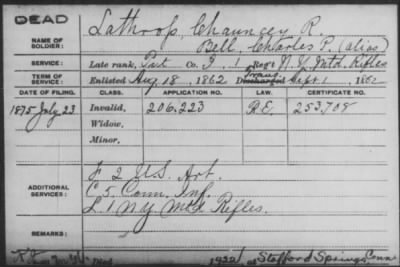 DEAD
Lathrop, Chauncey R.
NAME OF SOLDIER: Bell, Charles P. (alias)
SERVICE: Late rank, Pvt Co. I, 1 Reg't N.Y. Mtd. Rifles
TERM OF SERVICE: Enlisted Aug 18, 1862 Discharged Trans. Sept. 1, 1862
DATE OF FILING. CLASS. APPLICATION NO. LAW. CERTIFICATE NO.
1875 July 23 Invalid, 206.223 253.708
Widow,
Minor,
F 2 U.S. Art.
ADDITIONAL SERVICES: C 5 Conn. Inf.
L 1 N.Y. Mtd Rifles.
REMARKS:
1922, at Stafford Springs Conn